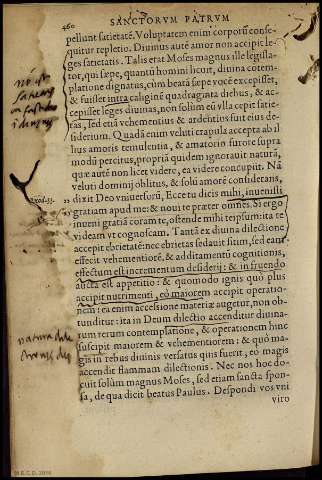 460
SANCTORVM PATRVM
pellunt satietatē. Voluptatem enim corporū conse-
quitur repletio. Diuinus autē amor non accipit le-
ges satietatis. Talis erat Moses magnus ille legisla-
tor, qui sæpe, quantū homini licuit, diuina cōtem-
platione dignatus, cùm beatā sæpe vocē excepisset,
& fuisset intra caliginē quadraginta diebus, & ac-
cepisset leges diuinas, non solùm eū vlla cepit satie-
tas, sed etiā vehementius & ardentius fuit eius de-
siderium. Quadā enim veluti crapula accepta ab il
lius amoris temulentia, & amatorio furore supra
modū percitus, propriā quidem ignorauit naturā,
quæ autē non licet videre, ea videre concupiit. Nā
veluti dominij oblitus, & solū amorē considerans,
Exod.33.
dixit Deo vniuersorū, Ecce tu dicis mihi, inuenisti
gratiam apud me: & noui te præter omnes. Si ergo
inueni gratiā coram te, ostende mihi teipsum: ita te
videam vt cognoscam. Tantā ex diuina dilectione
accepit ebrietatē: nec ebrietas sedauit sitim, sed eam
effecit vehementiorē, & additamentū cognitionis,
effectum est incrementum desiderij: & in fruendo
aucta est appetitio: & quomodo ignis quo plus
accipit nutrimenti, eò maiorem accipit operatio-
nem: ea enim accessione materiæ augetur, non ob-
tunditur: ita in Deum dilectio accenditur diuina-
rum rerum contemplatione, & operationem hinc
suscipit maiorem & vehementiorem: & quò ma-
gis in rebus diuinis versatus quis fuerit, eò magis
accendit flammam dilectionis. Nec nos hoc do-
cuit solùm magnus Moses, sed etiam sancta spon-
sa, de qua dicit beatus Paulus. Despondi vos vni
viro
M.E.C.D. 2016